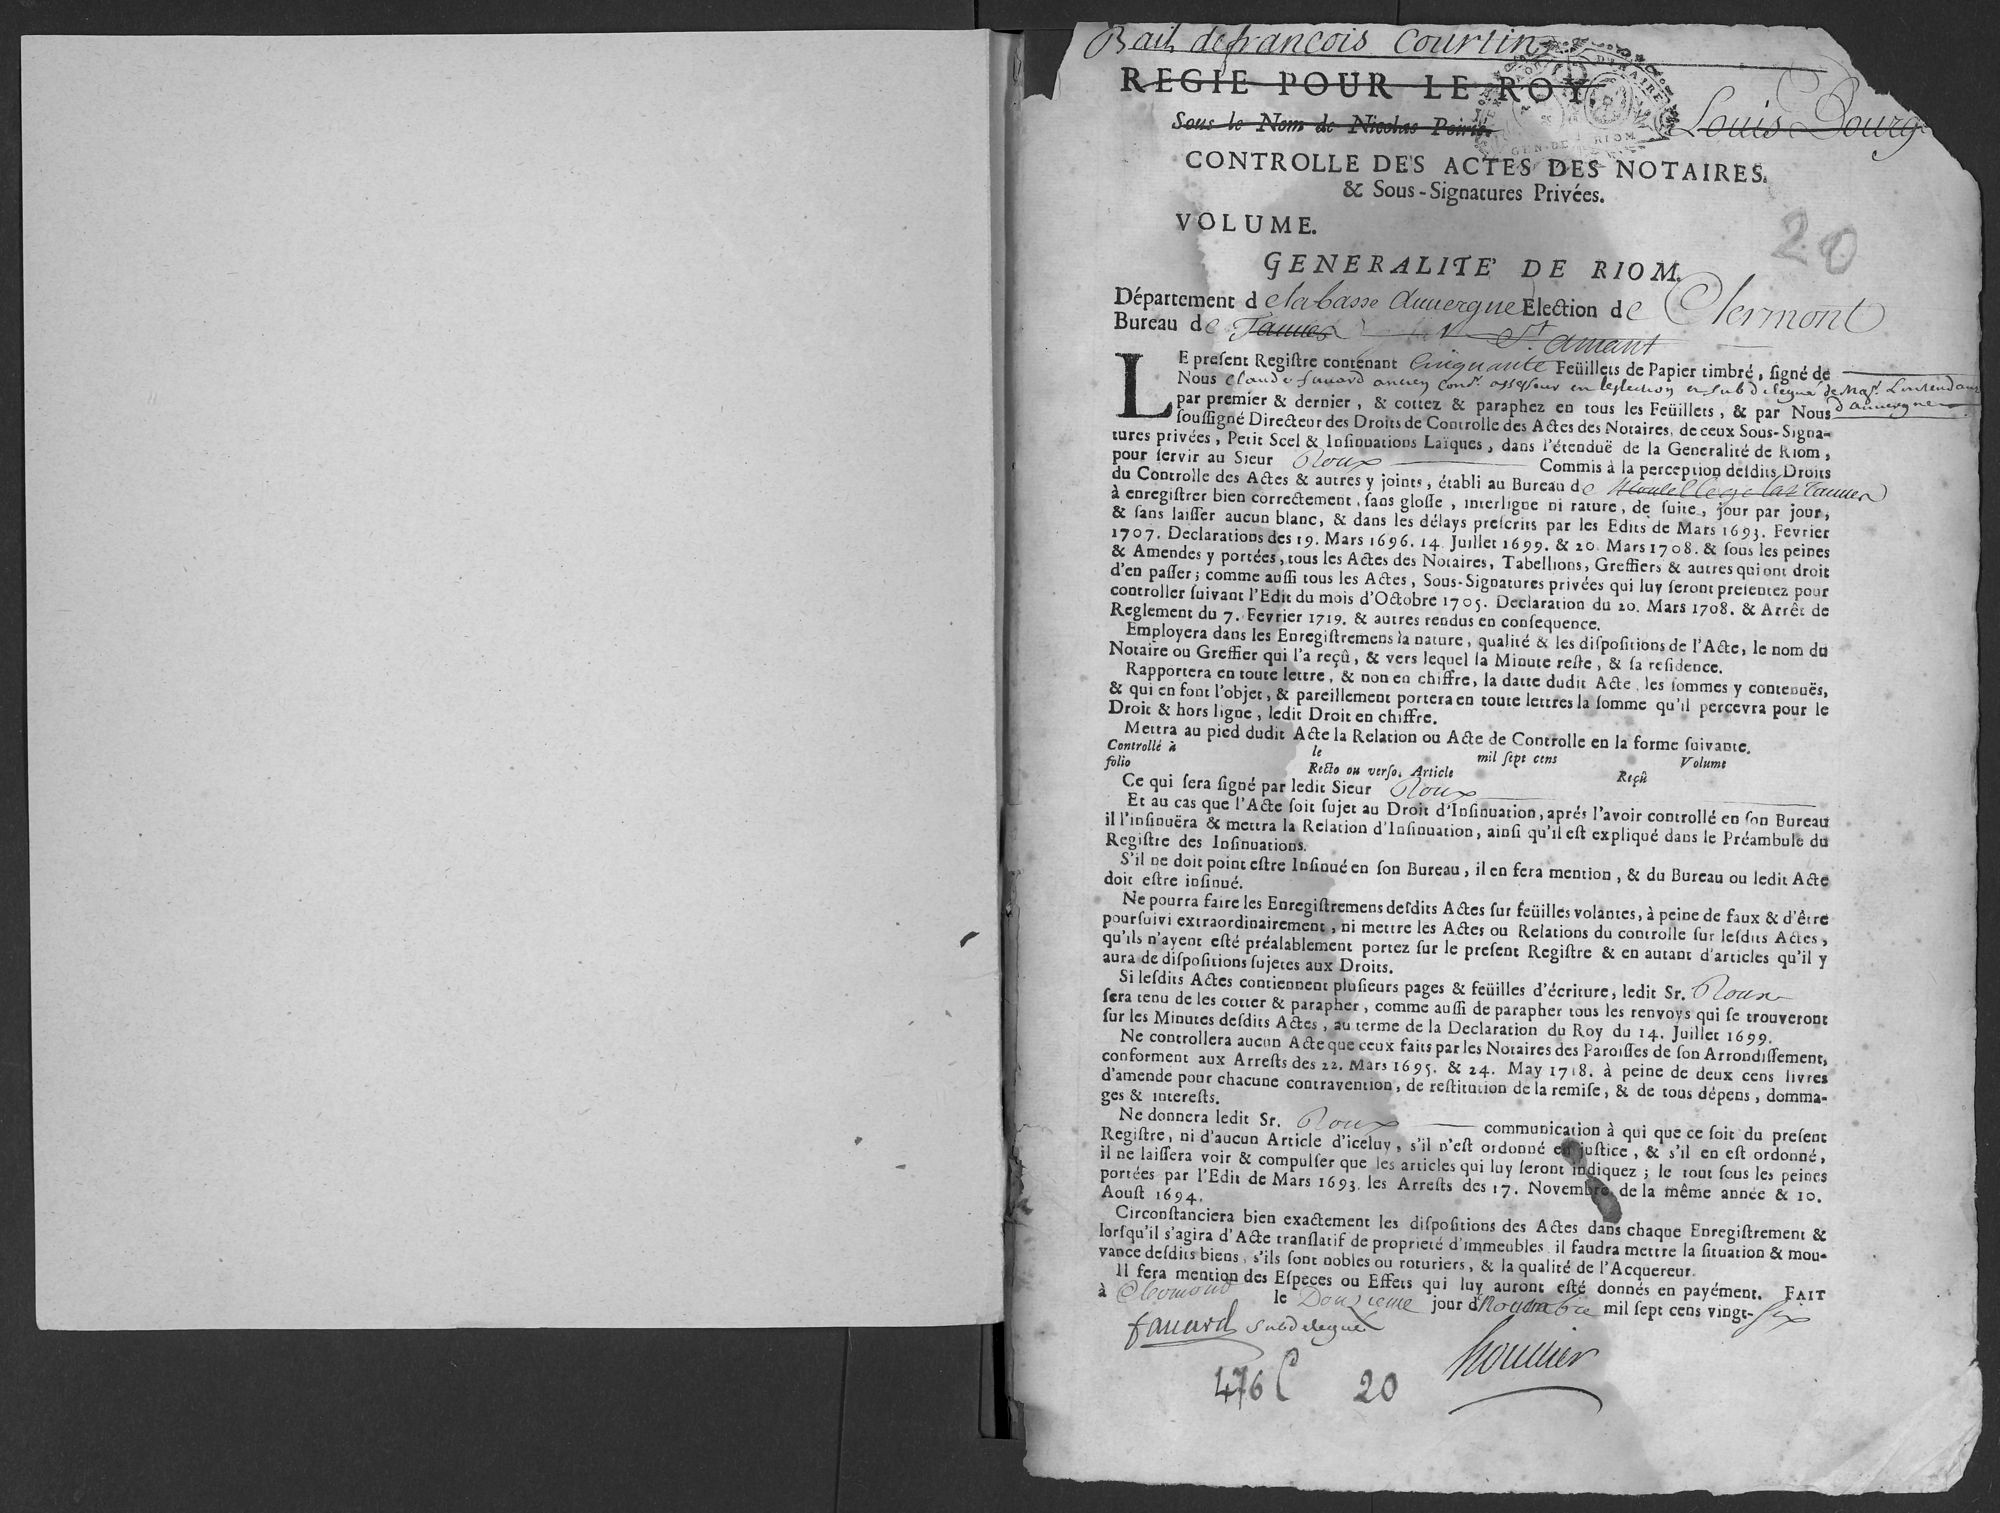 Bail de francois Courtin
REGIE POUR LE ROY
Sous le Nom de Nicolas
Louis Bourg
CONTROLLE DES ACTES DES NOTAIRES.
& Sous-Signatures Privées.
VOLUME.
20
GENERALITE' DE RIOM.
Département de la basse Auvergne Election de Clermont
Bureau de St amant
LE preſent Regiſtre contenant Cinquante Feüillets de Papier timbré, ſigné de
Nous Claude ancien assesseur en lelection subdelegué de Mgr. Lintendant
d'auvergne
par premier & dernier, & cottez & paraphez en tous les Feüillets, & par Nous
ſouſſigné Directeur des Droits de Controlle des Actes des Notaires, de ceux Sous-Signa-
tures privées, Petit Scel & Inſinuations Laïques, dans l'étenduë de la Generalité de Riom,
pour ſervir au Sieur Roux Commis à la perception deſdits Droits
du Controlle des Actes & autres y joints, établi au Bureau de
à enregiſtrer bien correctement, ſans gloſſe, interligne ni rature, de ſuite, jour par jour,
& ſans laiſſer aucun blanc, & dans les délays preſcrits par les Edits de Mars 1693. Fevrier
1707. Declarations des 19. Mars 1696. 14. Juillet 1699. & 20. Mars 1708. & ſous les peines
& Amendes y portées, tous les Actes des Notaires, Tabellions, Greffiers & autres qui ont droit
d'en paſſer; comme auſſi tous les Actes, Sous-Signatures privées qui luy ſeront preſentez pour
controller ſuivant l'Edit du mois d'Octobre 1705. Declaration du 20. Mars 1708. & Arrêt de
Reglement du 7. Fevrier 1719. & autres rendus en conſequence.
Employera dans les Enregiſtremens la nature, qualité & les diſpoſitions de l'Acte, le nom du
Notaire ou Greffier qui l'a reçû, & vers lequel la Minute reſte, & ſa reſidence.
Rapportera en toute lettre, & non en chiffre, la datte dudit Acte, les ſommes y contenuës,
& qui en font l'objet, & pareillement portera en toute lettres la ſomme qu'il percevra pour le
Droit & hors ligne, ledit Droit en chiffre.
Mettra au pied dudit Acte la Relation ou Acte de Controlle en la forme ſuivante.
Controllé à le mil ſept cens Volume
folio Recto ou verſo. Article Reçû
Ce qui ſera ſigné par ledit Sieur Roux
Et au cas que l'Acte ſoit ſujet au Droit d'Inſinuation, aprés l'avoir controllé en ſon Bureau
il l'inſinuëra & mettra la Relation d'Inſinuation, ainſi qu'il eſt expliqué dans le Préambule du
Regiſtre des Inſinuations.
S'il ne doit point eſtre Inſinué en ſon Bureau, il en fera mention, & du Bureau ou ledit Acte
doit eſtre inſinué.
Ne pourra faire les Enregiſtremens deſdits Actes ſur feüilles volantes, à peine de faux & d'être
pourſuivi extraordinairement, ni mettre les Actes ou Relations du controlle ſur leſdits Actes,
qu'ils n'ayent eſté préalablement portez ſur le preſent Regiſtre & en autant d'articles qu'il y
aura de diſpoſitions ſujetes aux Droits.
Si leſdits Actes contiennent pluſieurs pages & feüilles d'écriture, ledit Sr. Roux
ſera tenu de les cotter & parapher, comme auſſi de parapher tous les renvoys qui ſe trouveront
ſur les Minutes deſdits Actes, au terme de la Declaration du Roy du 14. Juillet 1699.
Ne controllera aucun Acte que ceux faits par les Notaires des Paroiſſes de ſon Arrondiſſement,
conforment aux Arreſts des 22. Mars 1695. & 24. May 1718. à peine de deux cens livres
d'amende pour chacune contravention, de reſtitution de la remiſe, & de tous dépens, domma-
ges & intereſts.
Ne donnera ledit Sr. Roux communication à qui que ce ſoit du preſent
Regiſtre, ni d'aucun Article d'iceluy, s'il n'eſt ordonné en juſtice, & s'il en eſt ordonné,
il ne laiſſera voir & compulſer que les articles qui luy ſeront indiquez; le tout ſous les peines
portées par l'Edit de Mars 1693. les Arreſts des 17. Novembre de la même année & 10.
Aouſt 1694.
Circonſtanciera bien exactement les diſpoſitions des Actes dans chaque Enregiſtrement &
lorſqu'il s'agira d'Acte tranſlatif de proprieté d'immeubles, il faudra mettre la ſituation & mou-
vance deſdits biens, s'ils ſont nobles ou roturiers, & la qualité de l'Acquereur.
Il fera mention des Eſpeces ou Effets qui luy auront eſté donnés en payément. FAIT
à le Douzieme jour de mil ſept cens vingt-six
subdelegué
476 C 20